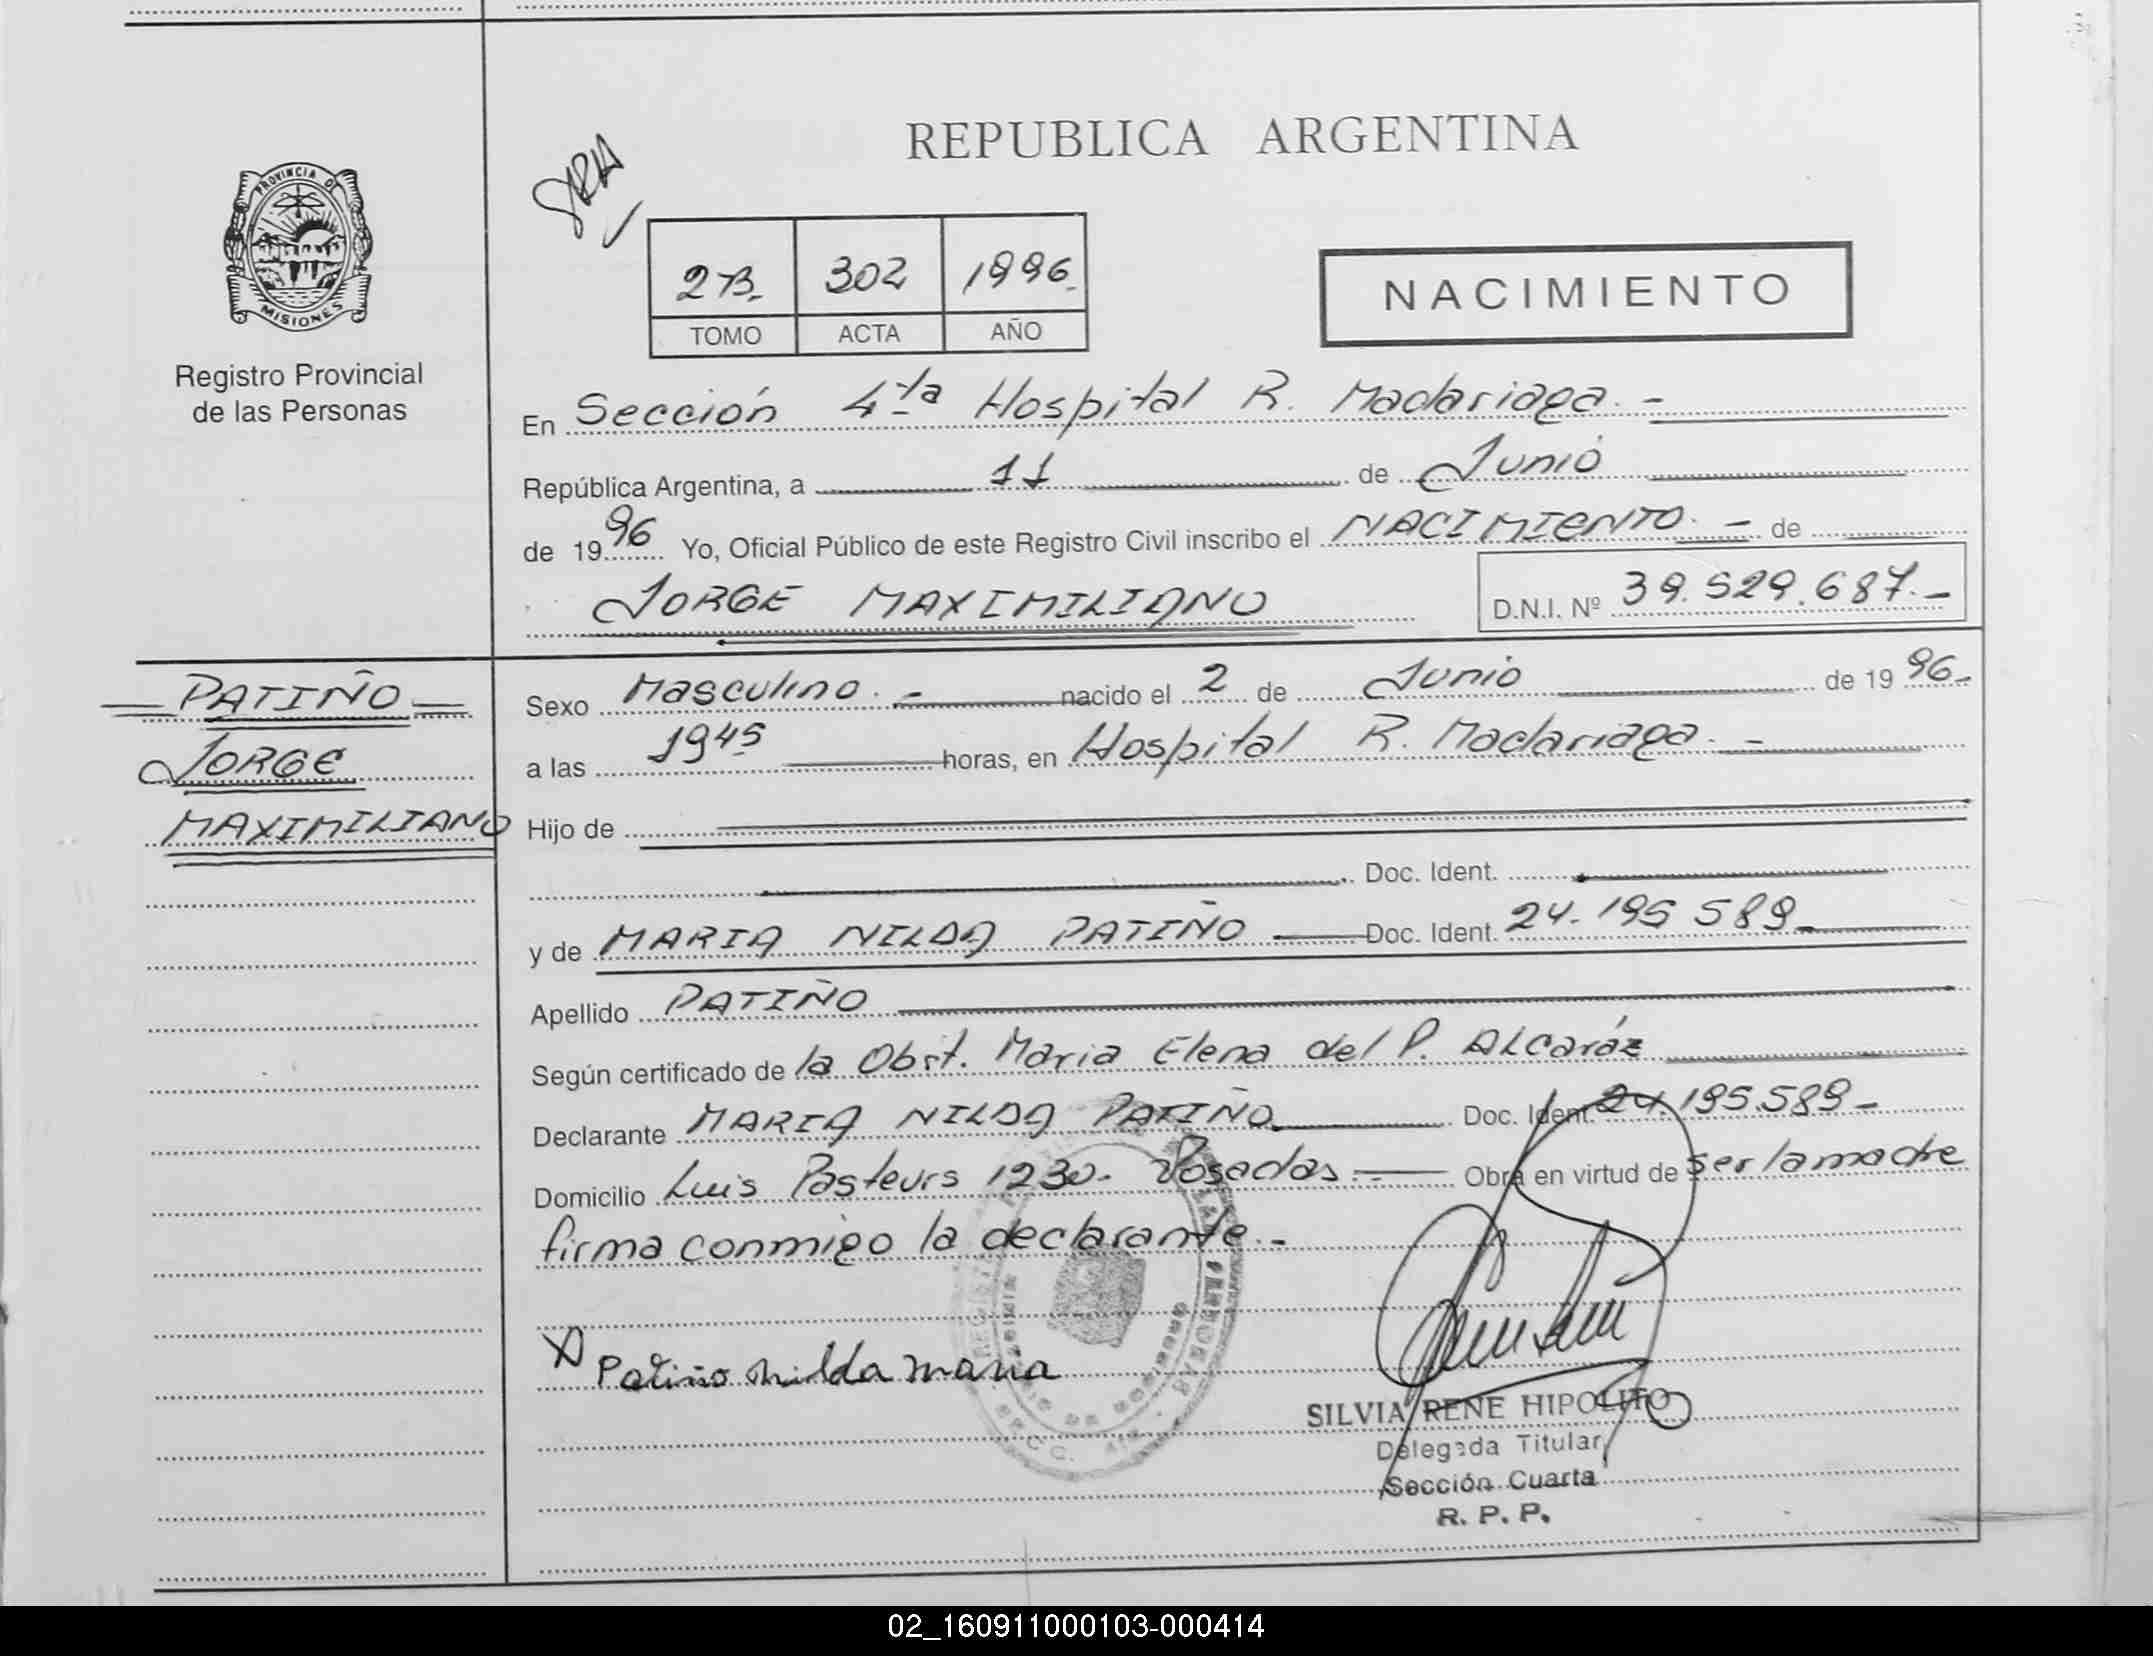 REPUBLICA ARGENTINA
PROVINCIA DE
MISIONES
Registro Provincial
de las Personas
2B. 302 1996.
TOMO ACTA AÑO
NACIMIENTO
En Sección 4ta Hospital R. Madariaga. -
República Argentina, a 11 de Junio
de 1996 Yo, Oficial Público de este Registro Civil inscribo el NACIMIENTO. - de
JORGE MAXIMILIANO D.N.I. Nº 39.529.687.-
PATIÑO
JORGE
MAXIMILIANO
Sexo Masculino. - nacido el 2 de Junio de 1996.
a las 1945 horas, en Hospital R. Madariaga. -
Hijo de
Doc. Ident.
y de MARIA NILDA PATIÑO Doc. Ident. 24.195 589.
Apellido PATIÑO
Según certificado de la Obst. Maria Elena del P. Alcaráz
Declarante MARIA NILDA PATIÑO Doc. Ident. 24.195.589-
Domicilio Luis Pasteurs 1230. Posadas. Obra en virtud de ser la madre
firma conmigo la declarante.-
Patiño Nilda Maria
SILVIA RENE HIPOLITO
Delegada Titular
Sección Cuarta
R. P. P.
02_160911000103-000414